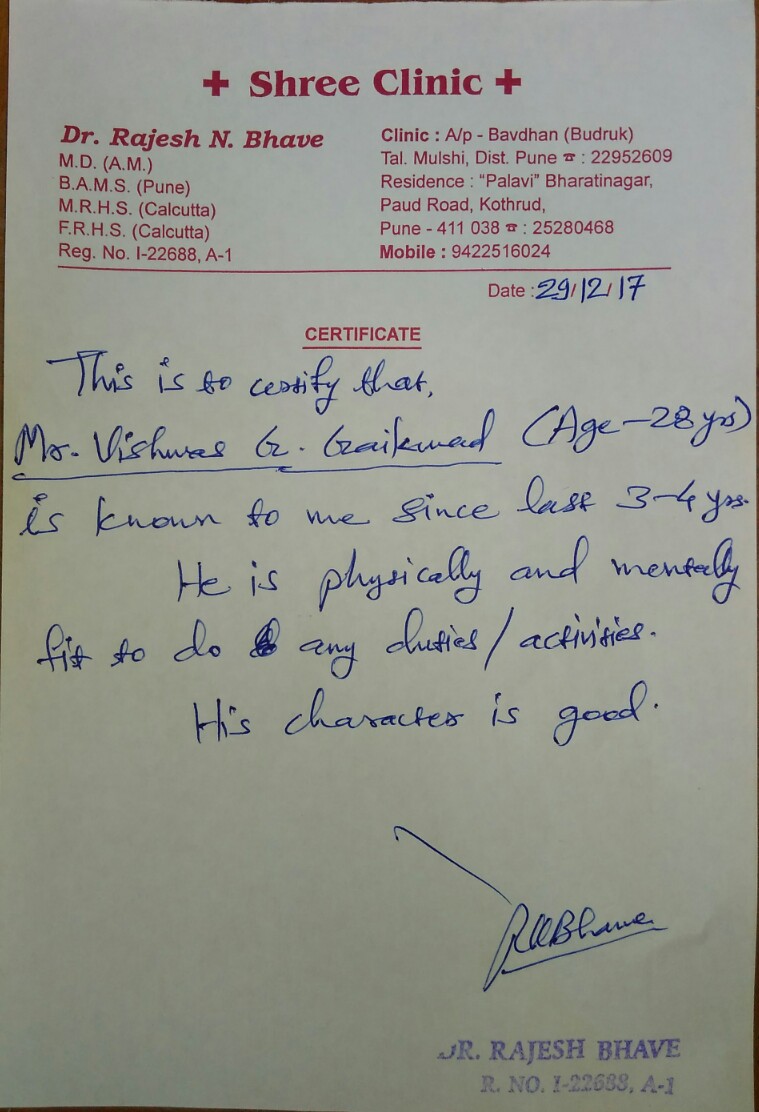 + Shree Clinic +
Dr. Rajesh N. Bhave
M.D. (A.M.)
B.A.M.S. (Pune)
M.R.H.S. (Calcutta)
F.R.H.S. (Calcutta)
Reg. No. I-22688, A-1
Clinic : A/p - Bavdhan (Budruk)
Tal. Mulshi, Dist. Pune ☎ : 22952609
Residence : “Palavi” Bharatinagar,
Paud Road, Kothrud,
Pune - 411 038 ☎ : 25280468
Mobile : 9422516024
Date : 29/12/17
CERTIFICATE
This is to certify that,
Mr. Vishwas G. Gaikwad (Age-28 yrs)
is known to me since last 3-4 yrs.
He is physically and mentally
fit to do any duties / activities.
His character is good.
RNBhave
DR. RAJESH BHAVE
R. NO. I-22688, A-1